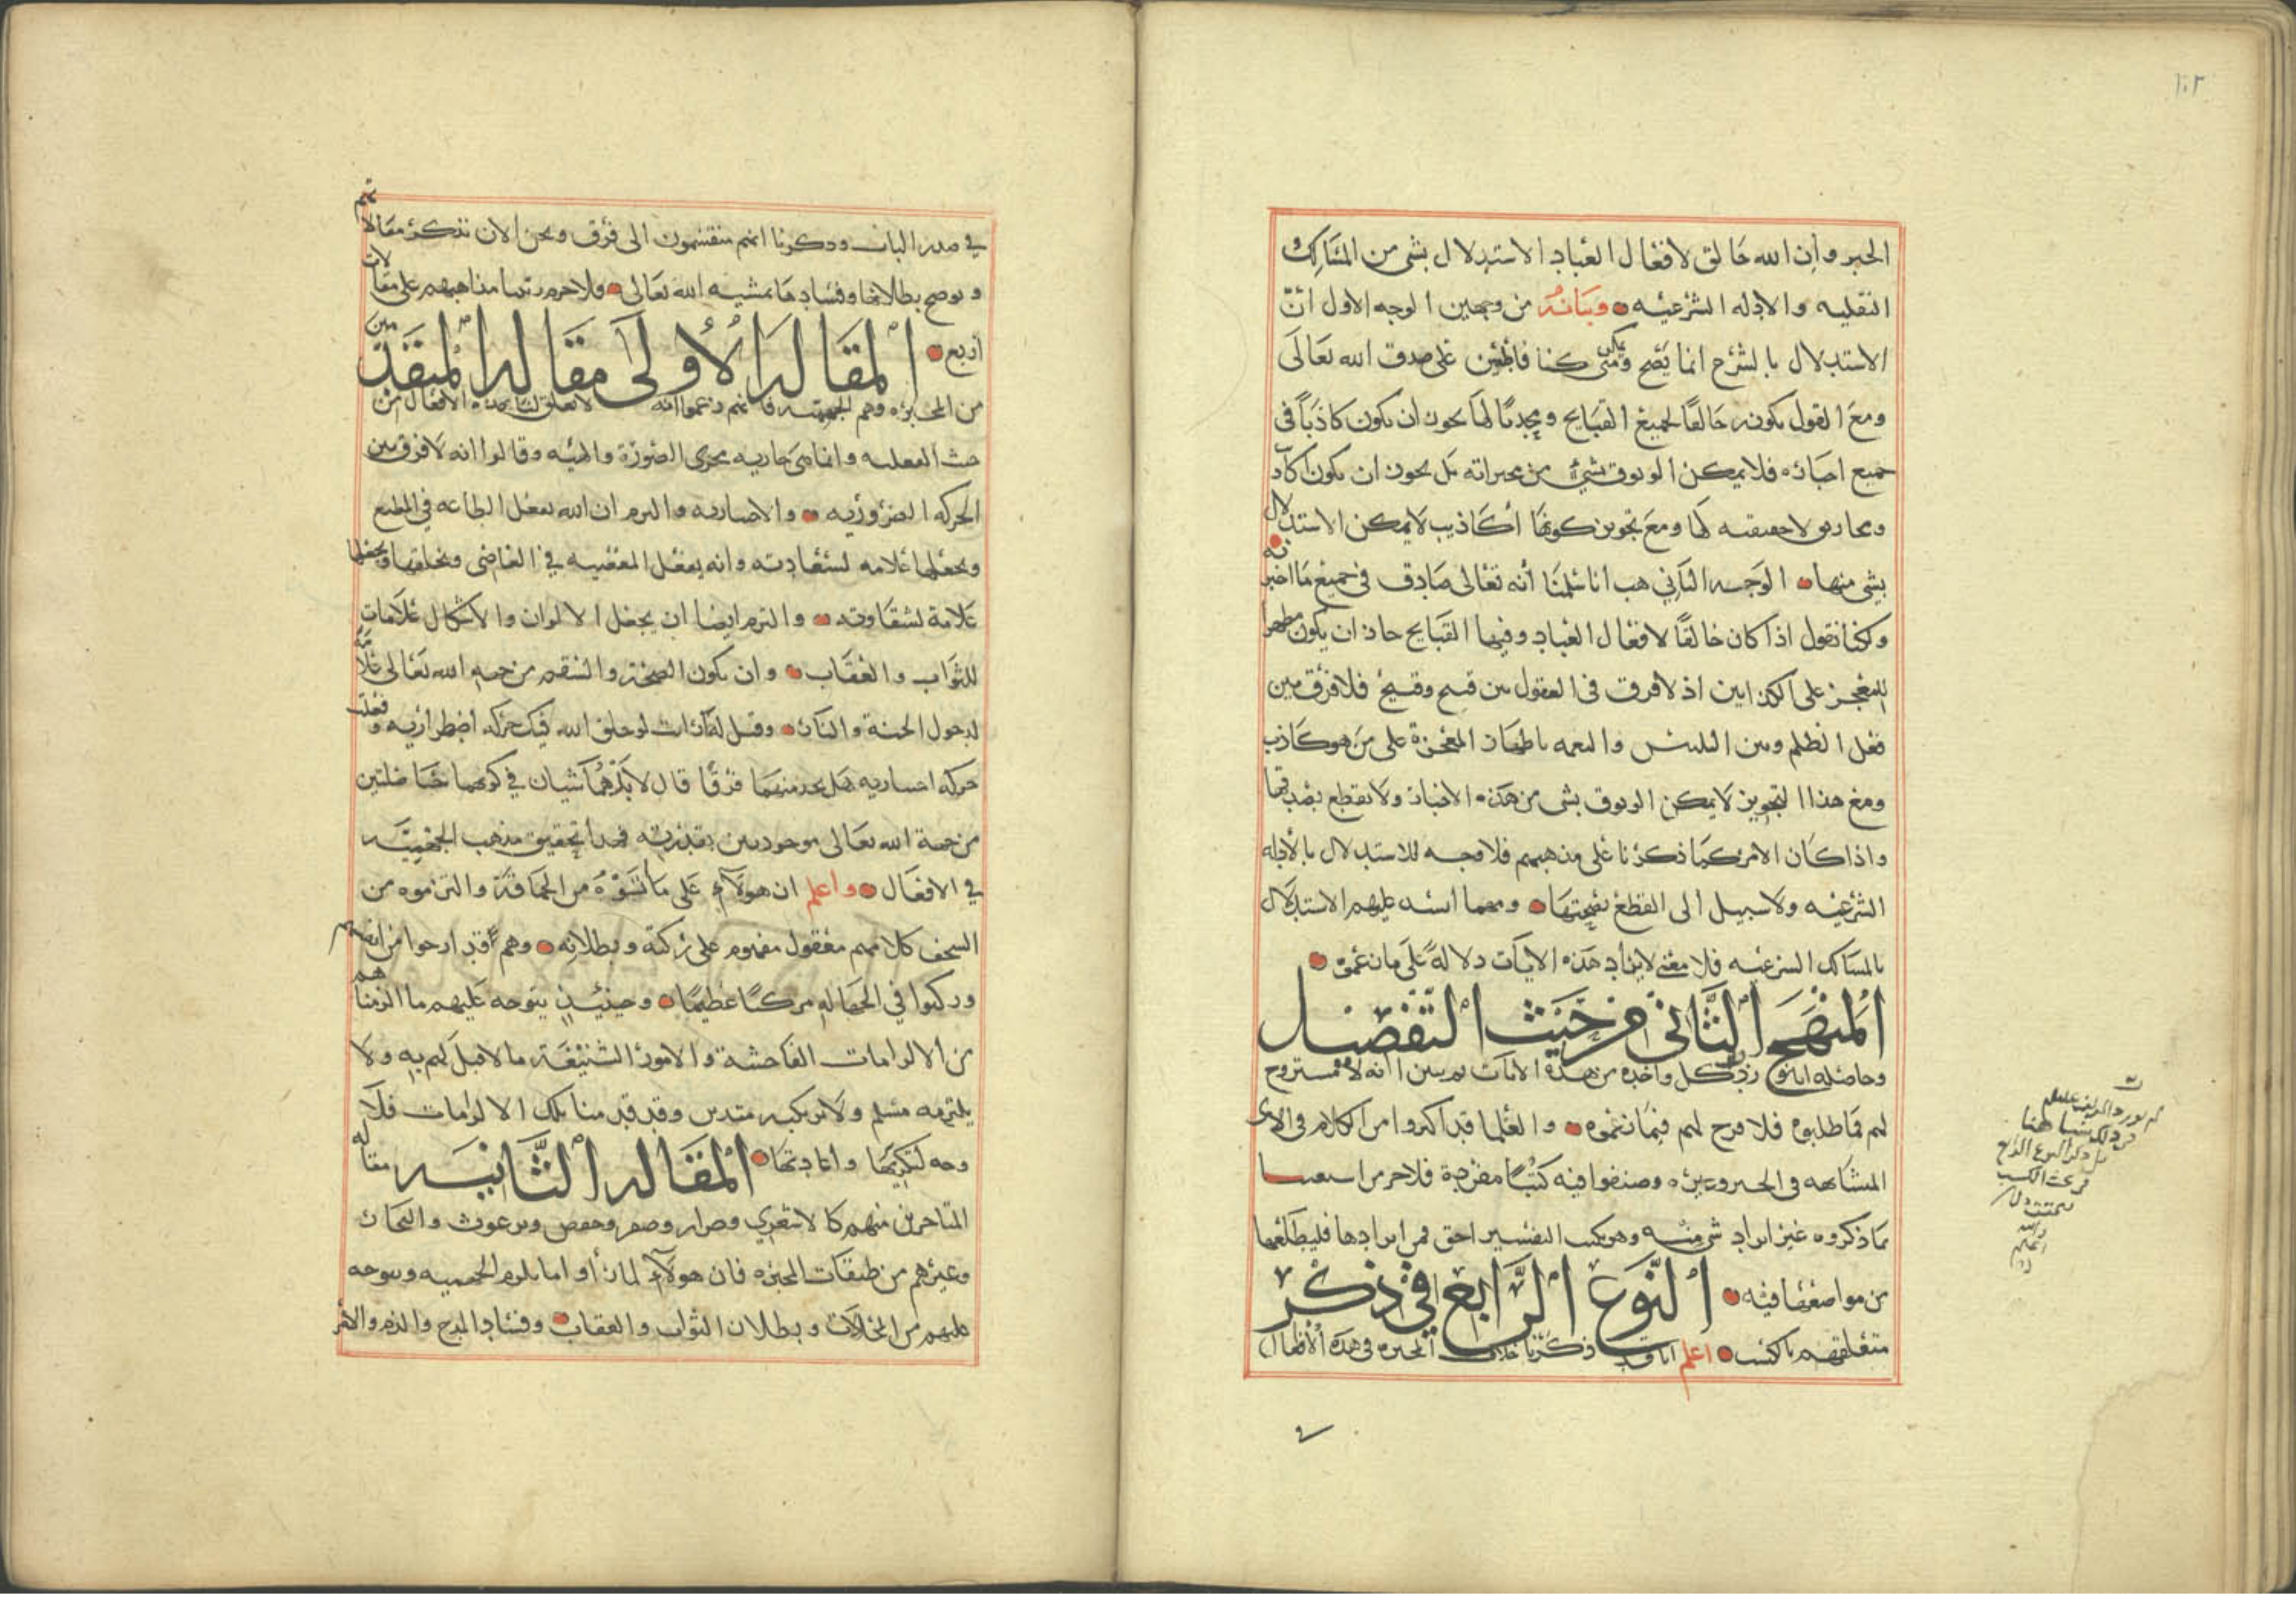 ١٠٢
الخبر وان الله خالق لافعال العباد الاستدلال بشى من المسالك
النقليه والادله الشرعيه وبيانه من وجهين الوجه الاول ان
الاستدلال بالشرع انما يصح ومتى كنا قاطعين على صدق الله تعالى
ومع القول بكونه خالقا لجميع القبايح وموجدا لها يجوز ان يكون كاذبا فى
جميع اخباره فلا يمكن الوثوق بشى من خبراته بل يجوز ان يكون اكاذ
ومخاريق لا حقيقه لها ومع تجويز كونها اكاذيب لا يمكن الاستدلال
بشى منها الوجه الثاني هب انا سلمنا أنه تعالى صادق فى جميع ما اخبر به
ولكنا نقول اذا كان خالقا لافعال العباد وفيها القبايح جاز ان يكون مظهرا
للمعجز على الكذابين اذ لا فرق فى العقول بين قبيح وقبيح فلا فرق بين
فعل الظلم وبين التلبيس والتعميه باظهار المعجزة على من هو كاذب
ومع هذا التجويز لا يمكن الوثوق بشى من هذه الاخبار ولا نقطع بصدقها
واذا كان الامر كما ذكرنا على مذهبهم فلا وجه للاستدلال بالأدله
الشرعيه ولا سبيل الى القطع بصحتها ومهما انسد عليهم الاستدلال
بالمسالك الشرعيه فلا معنى لايراد هذه الايات دلالة على ما زعموه
المنهج الثاني من حيث التفصيل
وحاصله انا نورد كل واحده من هذه الايات ثم نبين انه لا مستروح
لهم فما طلبوه فلا فرج لهم فيما زعموه والعلما قد اكثروا من الكلام فى الاى
المتشابهه فى الجبر وغيره وصنفوا فيه كتبا مفرده فلا جرم استغنينا
بما ذكروه عن ايراد شى منه وهو بكتب التفسير احق فمن ارادها فليطلعها
من مواضعها فيه النوع الرابع في ذكر
متعلقهم بالكسب اعلم انا قد ذكرنا خلاف المجبره فى هذه الافعال
في صدر الباب وذكرنا انهم منقسمون الى فرق ونحن الان نذكر مقالاتهم
ونوضح بطلانها وفسادها بمشيه الله تعالى فلا جرم رتبنا مذاهبهم على مقالات
أربع المقاله الأولى مقاله المتقدمين
من المجبره وهم الجهميه فانهم زعموا انه لا تعلق لنا بهذه الافعال من
حيث الفعليه وانما هى جاريه مجرى الصورة والهيه وقالوا انه لا فرق بين
الحركه الضروريه والاختياريه والتزم ان الله يفعل الطاعه في المطيع
ويجعلها علامه لسعادته وانه يفعل المعصيه في العاصى ويخلقها ويجعلها
علامة لشقاوته والتزم ايضا ان يجعل الالوان والاشكال علامات
للثواب والعقاب وان يكون الصحة والسقم من جهه الله تعالى علامة
لدخول الجنة والنار وقيل له أرأيت لو خلق الله فيك حركه اضطراريه وفعلت
حركه اختياريه هل تجد منهما فرقا قال لا بل هما سيان في كونهما حاصلتين
من جهة الله تعالى موجودتين بقدرته فهذا تحقيق مذهب الجهميه
في الافعال واعلم ان هولاء على ما أتوه من الحماقة والتزموه من
السخف كلامهم معقول مفهوم على ركته وبطلانه وهم قد ارحوا من انفسهم
وركبوا في الجهاله مركبا عظيما وحينئذ يتوجه عليهم ما الزمناهم
من الالزامات الفاحشة والامور الشنيعة ما لا قبل لهم به ولا
يلتزمه مسلم ولا يرتكبه متدين وقد قدمنا تلك الالزامات فلا
وجه لتكريرها واعادتها المقاله الثانيه مقاله
المتاخرين منهم كالاشعري وضرار وحفص وبرغوث والنجار
وغيرهم من طبقات المجبره فان هولاء لما رأوا ما يلزم الجهميه ويتوجه
عليهم من المحالات وبطلان الثواب والعقاب وفساد المدح والذم والامر